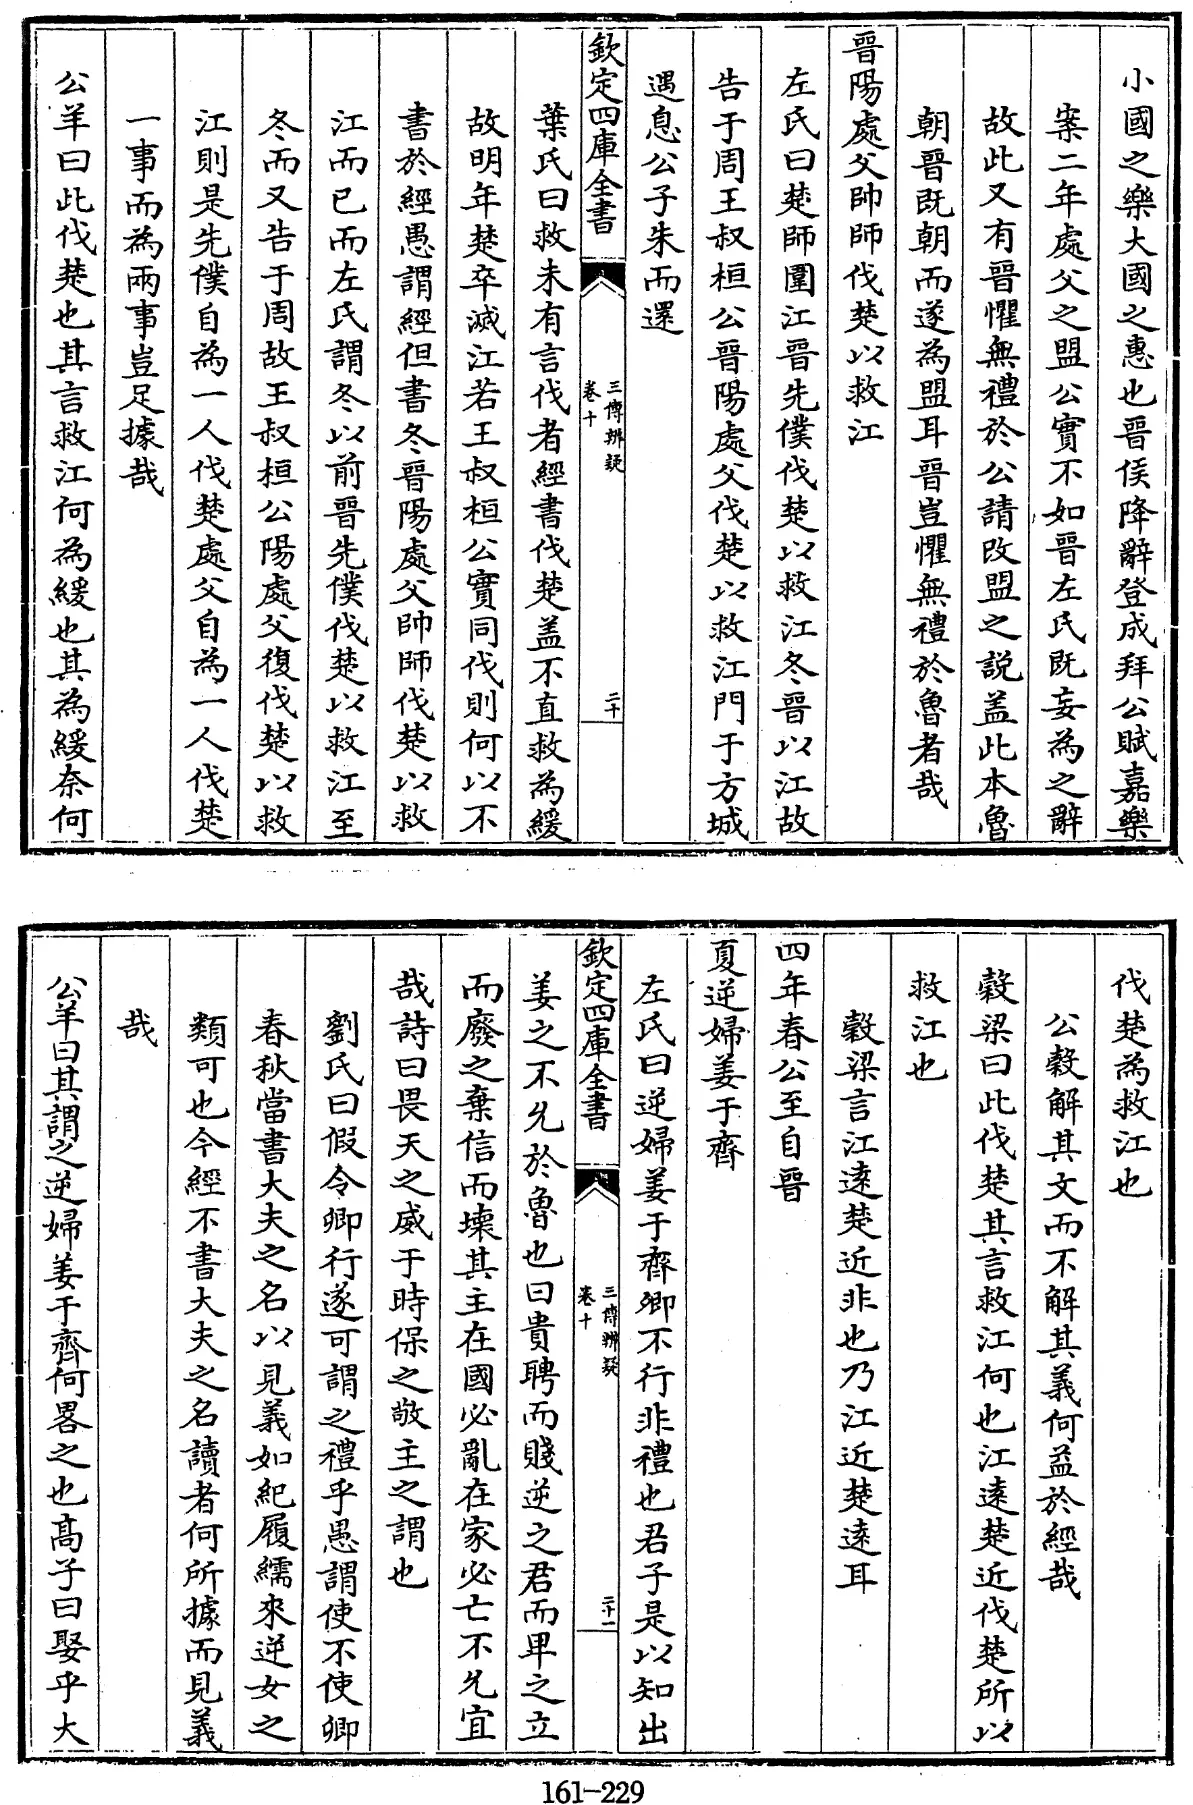 小國之樂大國之惠也晉侯降辭登成拜公賦嘉樂
案二年處父之盟公實不如晉左氏既妄為之辭
故此又有晉懼無禮於公請改盟之説盖此本魯
朝晉既朝而遂為盟耳晉豈懼無禮於魯者哉
晉陽處父帥師伐楚以救江
左氏曰楚師圍江晉先僕伐楚以救江冬晉以江故
告于周王叔桓公晉陽處父伐楚以救江門于方城
遇息公子朱而還
欽定四庫全書
三傳辨疑
卷十
二十
葉氏曰救未有言伐者經書伐楚盖不直救為緩
故明年楚卒滅江若王叔桓公實同伐則何以不
書於經愚謂經但書冬晉陽處父帥師伐楚以救
江而已而左氏謂冬以前晉先僕伐楚以救江至
冬而又告于周故王叔桓公陽處父復伐楚以救
江則是先僕自為一人伐楚處父自為一人伐楚
一事而為兩事豈足據哉
公羊曰此伐楚也其言救江何為緩也其為緩奈何
伐楚為救江也
公穀解其文而不解其義何益於經哉
穀梁曰此伐楚其言救江何也江逺楚近伐楚所以
救江也
穀梁言江逺楚近非也乃江近楚逺耳
四年春公至自晉
夏逆婦姜于齊
左氏曰逆婦姜于齊卿不行非禮也君子是以知出
欽定四庫全書
三傳辨疑
卷十
二十一
姜之不允於魯也曰貴聘而賤逆之君而卑之立
而廢之棄信而壞其主在國必亂在家必亡不允宜
哉詩曰畏天之威于時保之敬主之謂也
劉氏曰假令卿行遂可謂之禮乎愚謂使不使卿
春秋當書大夫之名以見義如紀履繻來逆女之
類可也今經不書大夫之名讀者何所據而見義
哉
公羊曰其謂之逆婦姜于齊何畧之也髙子曰娶乎大
161-229